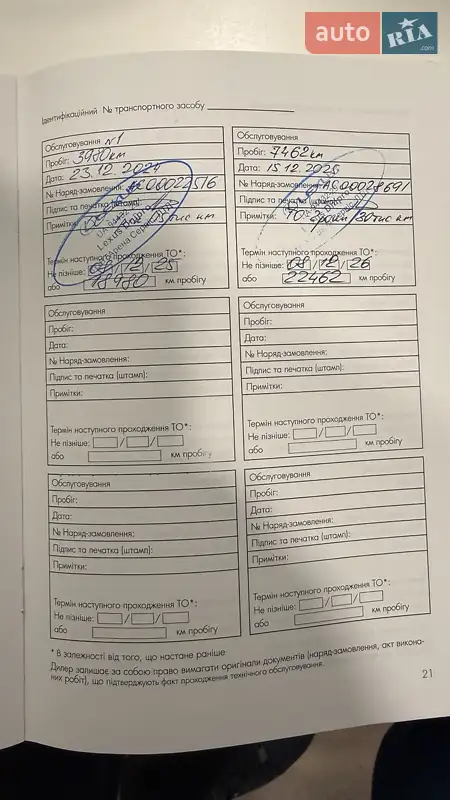 auto RIA.com
Ідентифікаційний № транспортного засобу
Обслуговування №1
Пробіг: 3980 km
Дата: 23.12.2024
№ Наряд-замовлення: AC00022516
Підпис та печатка (штамп):
Примітки: тис km
Термін наступного проходження ТО*:
Не пізніше: /12/25
або 18980 км пробігу
Обслуговування
Пробіг: 7462 km
Дата: 15.12.2025
№ Наряд-замовлення: AC00028691
Підпис та печатка (штамп):
Примітки: тис km
Термін наступного проходження ТО*:
Не пізніше: /12/26
або 22462 км пробігу
Обслуговування
Пробіг:
Дата:
№ Наряд-замовлення:
Підпис та печатка (штамп):
Примітки:
Термін наступного проходження ТО*:
Не пізніше: / /
або км пробігу
Обслуговування
Пробіг:
Дата:
№ Наряд-замовлення:
Підпис та печатка (штамп):
Примітки:
Термін наступного проходження ТО*:
Не пізніше: / /
або км пробігу
Обслуговування
Пробіг:
Дата:
№ Наряд-замовлення:
Підпис та печатка (штамп):
Примітки:
Термін наступного проходження ТО*:
Не пізніше: / /
або км пробігу
Обслуговування
Пробіг:
Дата:
№ Наряд-замовлення:
Підпис та печатка (штамп):
Примітки:
Термін наступного проходження ТО*:
Не пізніше: / /
або км пробігу
* В залежності від того, що настане раніше
Дилер залишає за собою право вимагати оригінали документів (наряд-замовлення, акт викона-
них робіт), що підтверджують факт проходження технічного обслуговування.
21